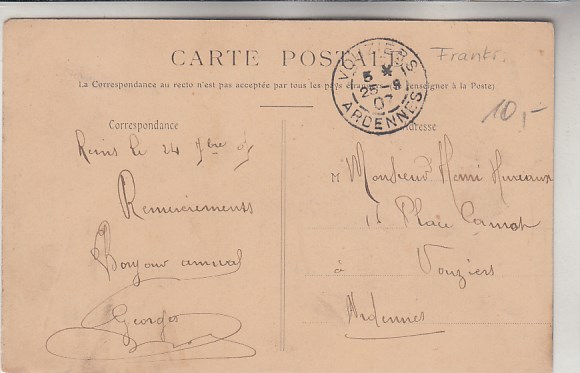 CARTE POSTALE
La Correspondance au recto n'est pas acceptée par tous les pays étrangers. (Se renseigner à la Poste)
VOUZIERS
5 *
25 - 9
07
ARDENNES
Frankr.
10,-
Correspondance
Reims le 24 7bre 07
Remerciements
Bonjour amical
Georges
Adresse
M Monsieur Henri
16 Place Carnot
à Vouziers
Ardennes